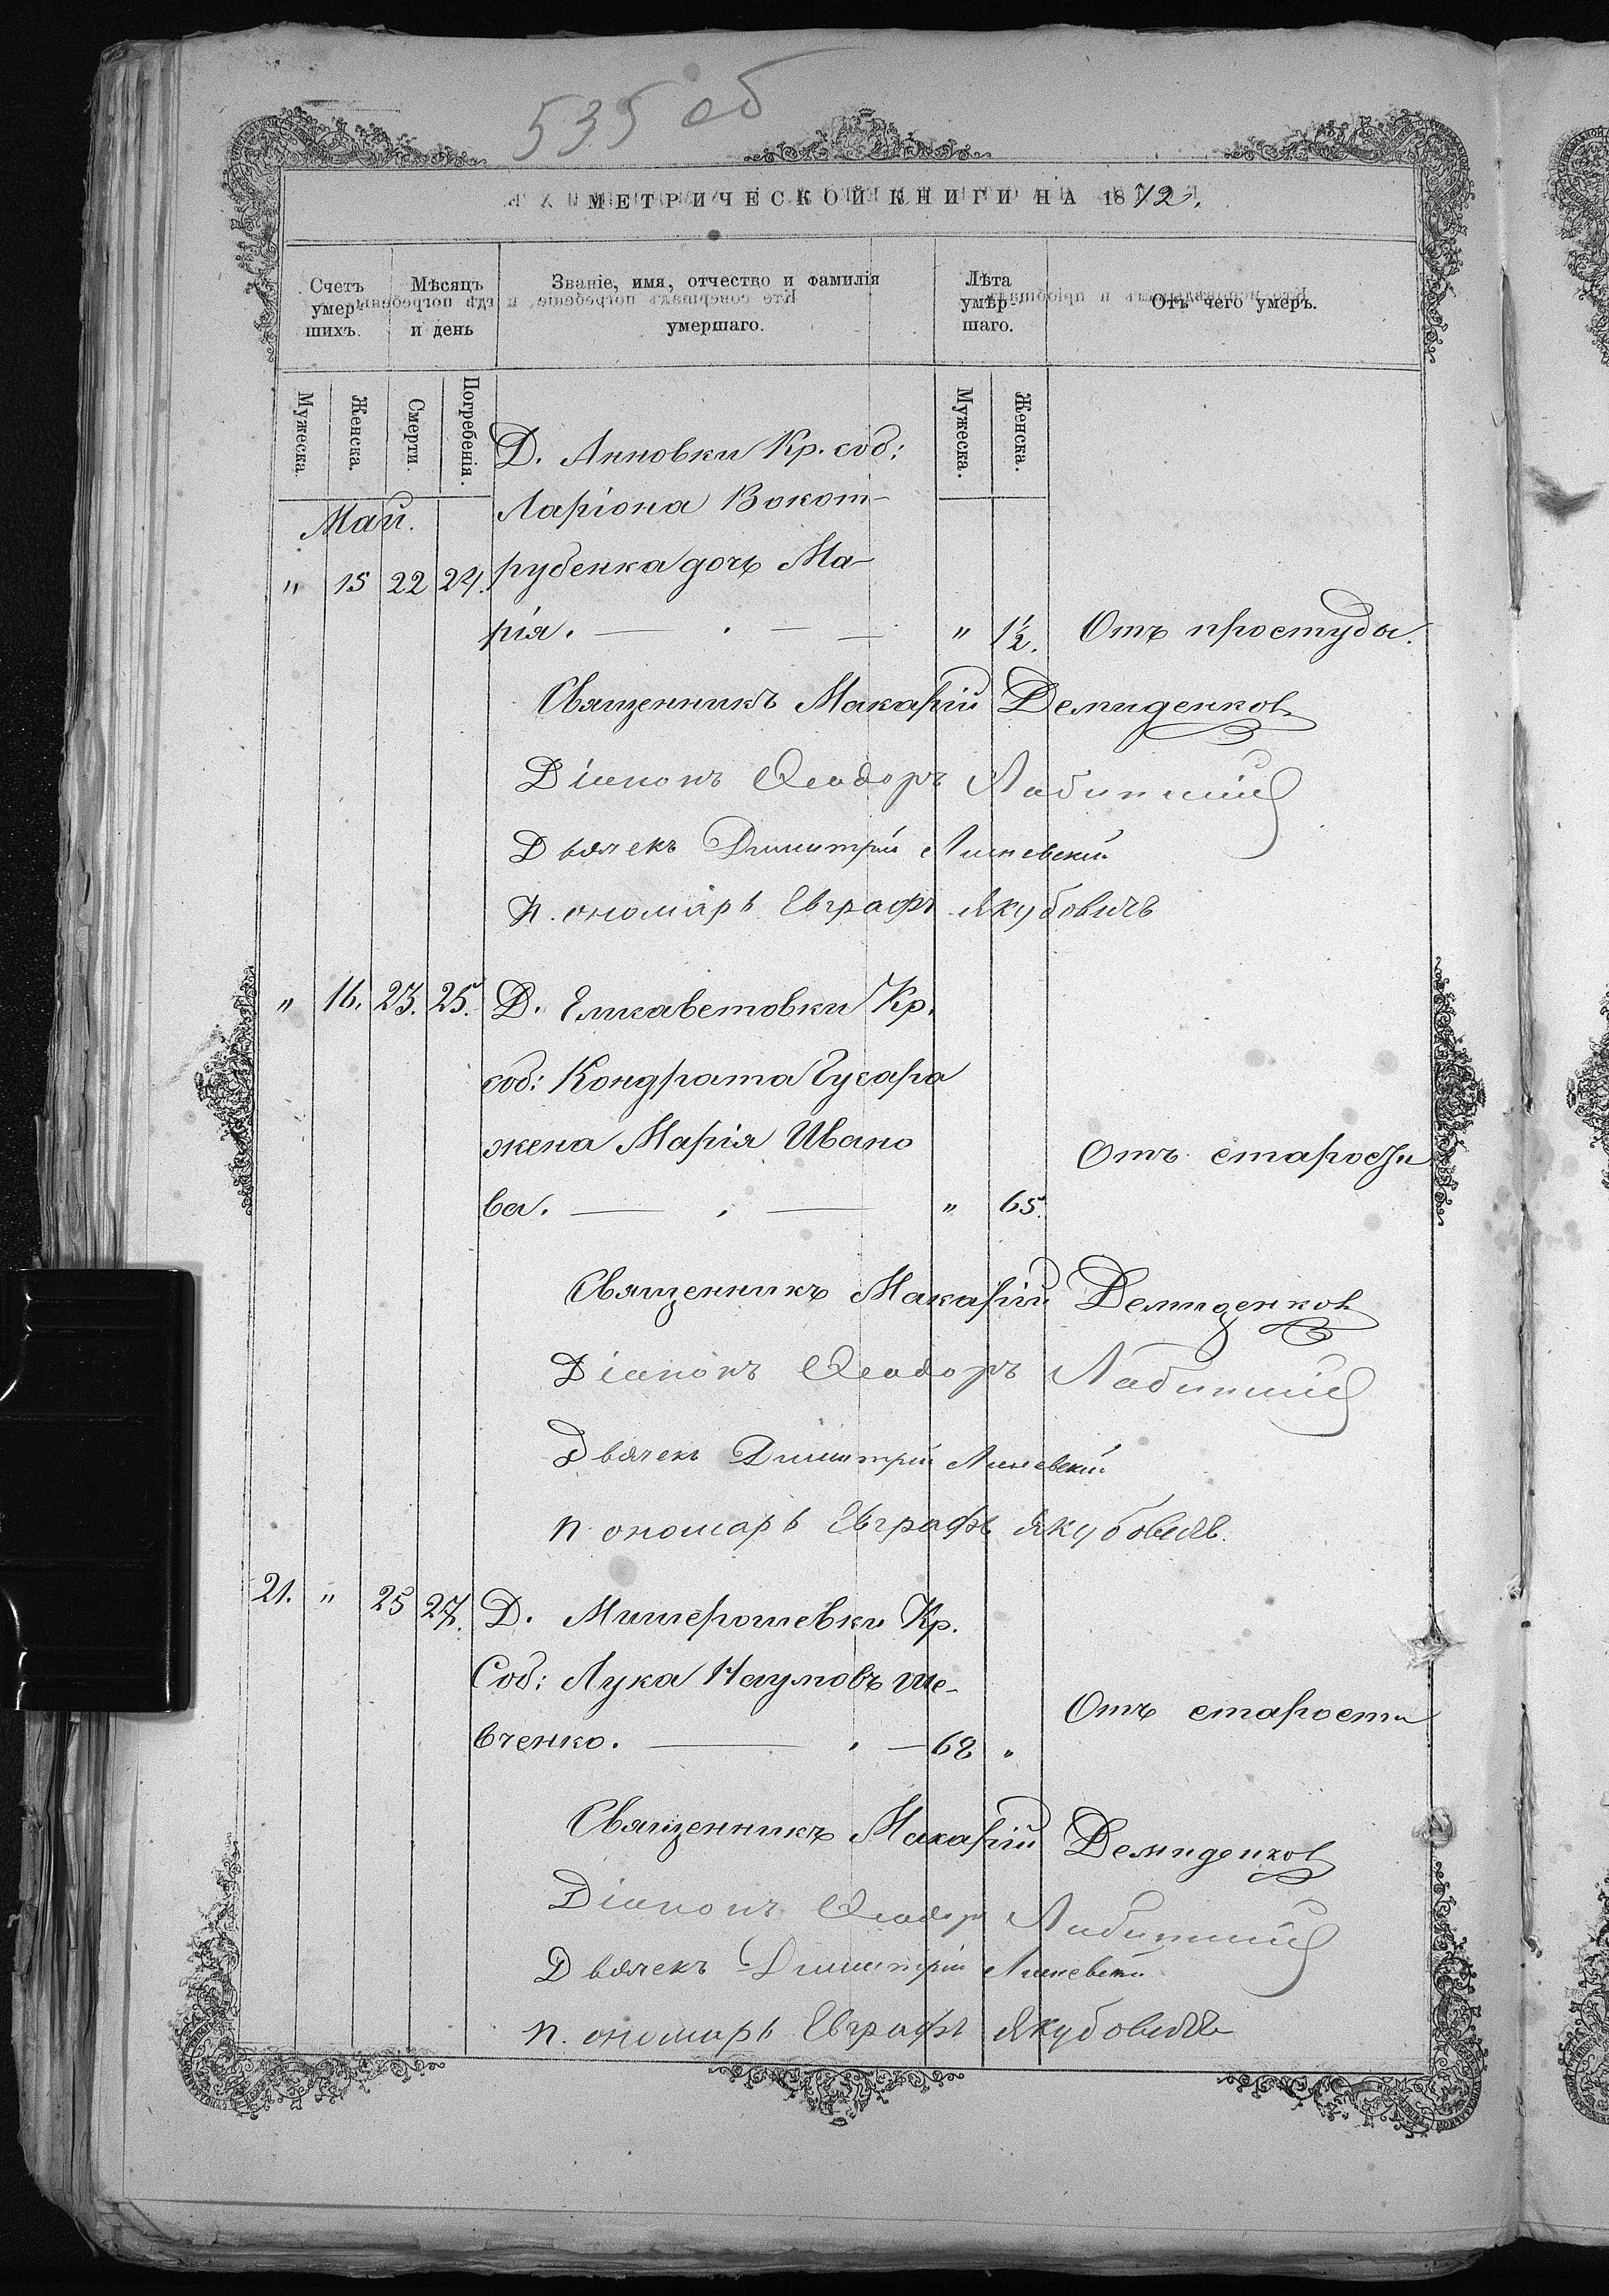 535 об
МЕТРИЧЕСКОЙ КНИГИ НА 1872.
Счетъ умер-шихъ.
Мѣсяцъ и день
Званіе, имя, отчество и фамилія умершаго.
Лѣта умер-шаго.
Отъ чего умеръ.
Мужеска. Женска. Смерти. Погребенія. Мужеска. Женска.
Д. Анновки Кр. соб:
Май. Ларіона Вокот-
" 15 22 24. рубенка дочь Ма-
рія. " 1½. Отъ простуды.
Священникъ Макарій Демиденков
Діаконъ Ѳеодоръ
Дьячекъ Димитрій Линевскій
Пономарь Евграфъ Якубовичъ
" 16. 23. 25. Д. Елисаветовки Кр.
соб: Кондрата Гусара
жена Марія Ивано
ва. " 65. Отъ старости
Священникъ Макарій Демиденков
Діаконъ Ѳеодоръ
Дьячекъ Димитрій Линевскій
Пономарь Евграфъ Якубовичъ.
21. " 25 27. Д. Мишерошевки Кр.
Соб: Лука Наумовъ Ше-
вченко. 68 " Отъ старости
Священникъ Макарій Демиденков
Діаконъ Ѳеодоръ
Дьячекъ Димитрій Линевскій
Пономарь Евграфъ Якубовичъ